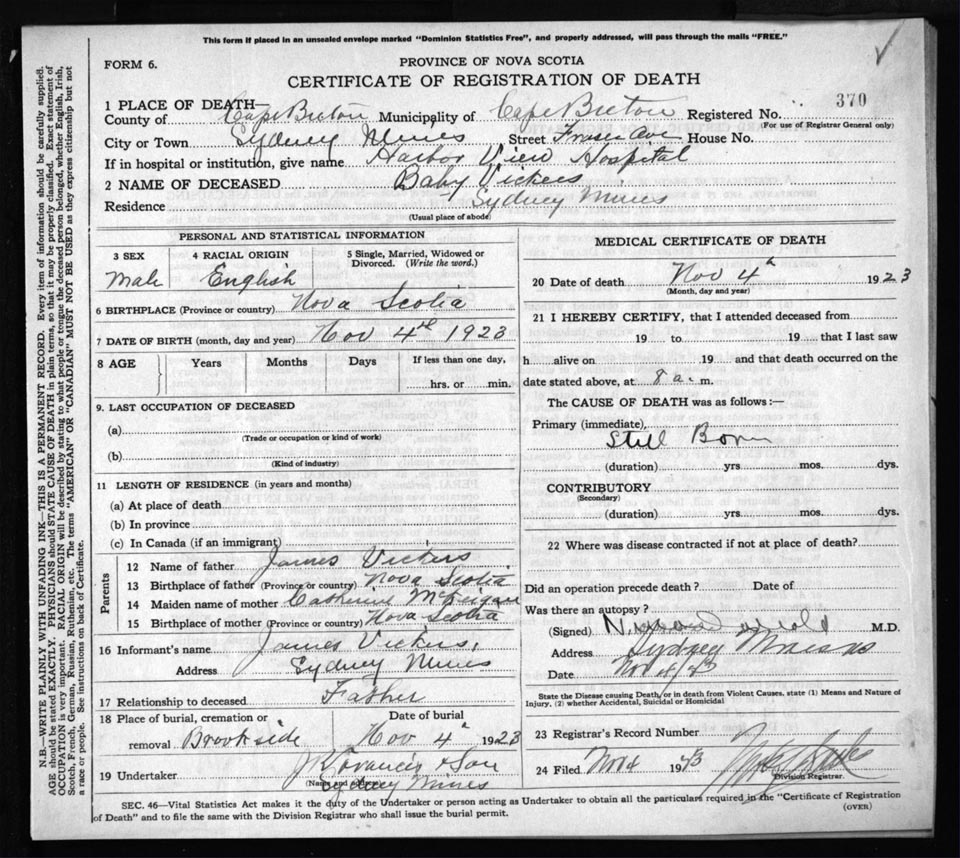 This form if placed in an unsealed envelope marked "Dominion Statistics Free", and properly addressed, will pass through the mails "FREE."
FORM 6.
PROVINCE OF NOVA SCOTIA
CERTIFICATE OF REGISTRATION OF DEATH
370
1 PLACE OF DEATH—
County of Cape Breton Municipality of Cape Breton Registered No.
(For use of Registrar General only)
City or Town Sydney Mines Street Fraser Ave House No.
If in hospital or institution, give name Harbor View Hospital
2 NAME OF DECEASED Baby Vickers
Residence Sydney Mines
(Usual place of abode)
PERSONAL AND STATISTICAL INFORMATION
3 SEX 4 RACIAL ORIGIN 5 Single, Married, Widowed or Divorced. (Write the word.)
Male English
6 BIRTHPLACE (Province or country) Nova Scotia
7 DATE OF BIRTH (month, day and year) Nov 4th 1923
8 AGE Years Months Days If less than one day,
hrs. or min.
9. LAST OCCUPATION OF DECEASED
(a)
(Trade or occupation or kind of work)
(b)
(Kind of industry)
11 LENGTH OF RESIDENCE (in years and months)
(a) At place of death
(b) In province
(c) In Canada (if an immigrant)
Parents
12 Name of father James Vickers
13 Birthplace of father (Province or country) Nova Scotia
14 Maiden name of mother Catherine McKeigan
15 Birthplace of mother (Province or country) Nova Scotia
16 Informant's name James Vickers,
Address Sydney Mines
17 Relationship to deceased Father
18 Place of burial, cremation or Date of burial
removal Brookside Nov 4th 1923
19 Undertaker Francis & Son
(Name and address)
Sydney Mines
MEDICAL CERTIFICATE OF DEATH
20 Date of death Nov 4th 1923
(Month, day and year)
21 I HEREBY CERTIFY, that I attended deceased from
19 to 19 that I last saw
h alive on 19 and that death occurred on the
date stated above, at 8 a. m.
The CAUSE OF DEATH was as follows:—
Primary (immediate),
Still Born
(duration) yrs. mos. dys.
CONTRIBUTORY
(Secondary)
(duration) yrs. mos. dys.
22 Where was disease contracted if not at place of death?
Did an operation precede death? Date of
Was there an autopsy?
(Signed) M.D.
Address Sydney Mines NS
Date Nov 4/23
State the Disease causing Death, or in death from Violent Causes, state (1) Means and Nature of Injury, (2) whether Accidental, Suicidal or Homicidal
23 Registrar's Record Number
24 Filed Nov 4 1923
Division Registrar.
SEC. 46—Vital Statistics Act makes it the duty of the Undertaker or person acting as Undertaker to obtain all the particulars required in the "Certificate of Registration
of Death" and to file the same with the Division Registrar who shall issue the burial permit.
(OVER)
N.B.—WRITE PLAINLY WITH UNFADING INK—THIS IS A PERMANENT RECORD. Every item of information should be carefully supplied.
AGE should be stated EXACTLY. PHYSICIANS should STATE CAUSE OF DEATH in plain terms, so that it may be properly classified. Exact statement of
OCCUPATION is very important. RACIAL ORIGIN will be described by stating to what people or tongue the deceased person belonged, whether English, Irish,
Scotch, French, German, Russian, Ruthenian, etc. The terms "AMERICAN" OR "CANADIAN" MUST NOT BE USED as they express citizenship but not
a race or people. See instructions on back of Certificate.